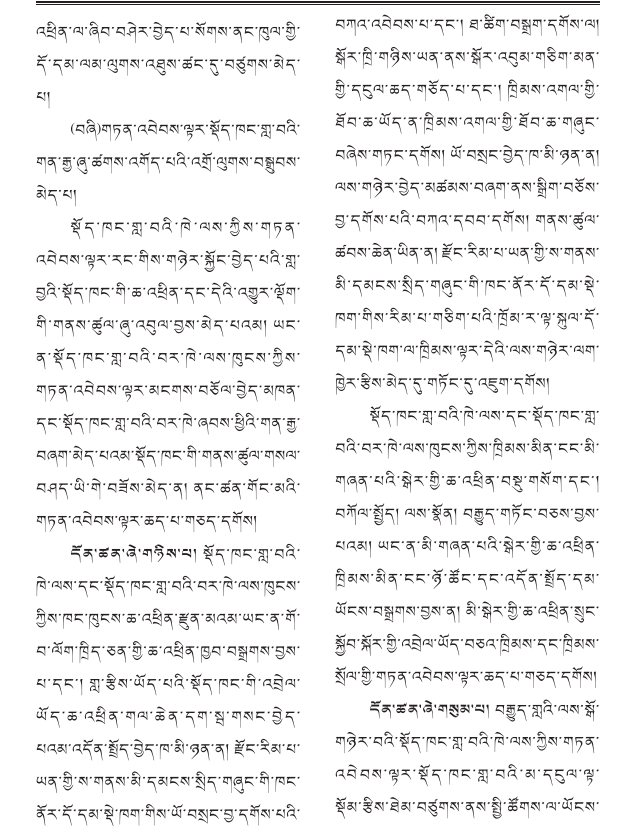 འཕྲིན་ལ་ཞིབ་བཤེར་བྱེད་པ་སོགས་ནང་ཁུལ་གྱི་
དོ་དམ་ལམ་ལུགས་འཐུས་ཚང་དུ་བཙུགས་མེད་
པ།
(བཞི)གཏན་འབེབས་ལྟར་སྡོད་ཁང་གླ་བའི་
གན་རྒྱ་ཞུ་ཚགས་འགོད་པའི་འགྲོ་ལུགས་བསྒྲུབས་
མེད་པ།
སྡོད་ཁང་གླ་བའི་ཁེ་ལས་ཀྱིས་གཏན་
འབེབས་ལྟར་རང་གིས་གཉེར་སྐྱོང་བྱེད་པའི་གླ་
བྱའི་སྡོད་ཁང་གི་ཆ་འཕྲིན་དང་དེའི་འགྱུར་ལྡོག་
གི་གནས་ཚུལ་ཞུ་འབུལ་བྱས་མེད་པའམ། ཡང་
ན་སྡོད་ཁང་གླ་བའི་བར་ཁེ་ལས་ཁུངས་ཀྱིས་
གཏན་འབེབས་ལྟར་མངགས་བཅོལ་བྱེད་མཁན་
དང་སྡོད་ཁང་གླ་བའི་བར་ཁེ་ཞབས་ཕྱིའི་གན་རྒྱ་
བཞག་མེད་པའམ་སྡོད་ཁང་གི་གནས་ཚུལ་གསལ་
བཤད་ཡི་གེ་བཟོས་མེད་ན། ནང་ཚན་གོང་མའི་
གཏན་འབེབས་ལྟར་ཆད་པ་གཅད་དགོས།
དོན་ཚན་ཞེ་གཉིས་པ། སྡོད་ཁང་གླ་བའི་
ཁེ་ལས་དང་སྡོད་ཁང་གླ་བའི་བར་ཁེ་ལས་ཁུངས་
ཀྱིས་ཁང་ཁུངས་ཆ་འཕྲིན་རྫུན་མའམ་ཡང་ན་གོ་
བ་ལོག་ཁྲིད་ཅན་གྱི་ཆ་འཕྲིན་ཁྱབ་བསྒྲགས་བྱས་
པ་དང་། གླ་རྩིས་ཡོད་པའི་སྡོད་ཁང་གི་འབྲེལ་
ཡོད་ཆ་འཕྲིན་གལ་ཆེན་དག་སྦ་གསང་བྱེད་
པའམ་འདོན་སྤྲོད་བྱེད་ཁ་མི་ཉན་ན། རྫོང་རིམ་པ་
ཡན་གྱི་ས་གནས་མི་དམངས་སྲིད་གཞུང་གི་ཁང་
ནོར་དོ་དམ་སྡེ་ཁག་གིས་ཡོ་བསྲང་བྱ་དགོས་པའི་
བཀའ་འབེབས་པ་དང་། ཐ་ཚིག་བསྒྲག་དགོས་ལ།
སྒོར་ཁྲི་གཉིས་ཡན་ནས་སྒོར་འབུམ་གཅིག་མན་
གྱི་དངུལ་ཆད་གཅོད་པ་དང་། ཁྲིམས་འགལ་གྱི་
ཐོབ་ཆ་ཡོད་ན་ཁྲིམས་འགལ་གྱི་ཐོབ་ཆ་གཞུང་
བཞེས་གཏང་དགོས། ཡོ་བསྲང་བྱེད་ཁ་མི་ཉན་ན།
ལས་གཉེར་བྱེད་མཚམས་བཞག་ནས་སྒྲིག་བཅོས་
བྱ་དགོས་པའི་བཀའ་དབབ་དགོས། གནས་ཚུལ་
ཚབས་ཆེན་ཡིན་ན། རྫོང་རིམ་པ་ཡན་གྱི་ས་གནས་
མི་དམངས་སྲིད་གཞུང་གི་ཁང་ནོར་དོ་དམ་སྡེ་
ཁག་གིས་རིམ་པ་གཅིག་པའི་ཁྲོམ་ར་ལྟ་སྐུལ་དོ་
དམ་སྡེ་ཁག་ལ་ཁྲིམས་ལྟར་དེའི་ལས་གཉེར་ལག་
ཁྱེར་རྩིས་མེད་དུ་གཏོང་དུ་འཇུག་དགོས།
སྡོད་ཁང་གླ་བའི་ཁེ་ལས་དང་སྡོད་ཁང་གླ་
བའི་བར་ཁེ་ལས་ཁུངས་ཀྱིས་ཁྲིམས་མིན་ངང་མི་
གཞན་པའི་སྒེར་གྱི་ཆ་འཕྲིན་བསྡུ་གསོག་དང་།
བཀོལ་སྤྱོད། ལས་སྣོན། བརྒྱུད་གཏོང་བཅས་བྱས་
པའམ། ཡང་ན་མི་གཞན་པའི་སྒེར་གྱི་ཆ་འཕྲིན་
ཁྲིམས་མིན་ངང་ཉོ་ཚོང་དང་འདོན་སྤྲོད་དམ་
ཡོངས་བསྒྲགས་བྱས་ན། མི་སྒེར་གྱི་ཆ་འཕྲིན་སྲུང་
སྐྱོབ་སྐོར་གྱི་འབྲེལ་ཡོད་བཅའ་ཁྲིམས་དང་ཁྲིམས་
སྲོལ་གྱི་གཏན་འབེབས་ལྟར་ཆད་པ་གཅད་དགོས།
དོན་ཚན་ཞེ་གསུམ་པ། བརྒྱུད་གླའི་ལས་སྒོ་
གཉེར་བའི་སྡོད་ཁང་གླ་བའི་ཁེ་ལས་ཀྱིས་གཏན་
འབེབས་ལྟར་སྡོད་ཁང་གླ་བའི་མ་དངུལ་ལྟ་
སྡོམ་རྩིས་ཐེམ་བཙུགས་ནས་སྤྱི་ཚོགས་ལ་ཡོངས་